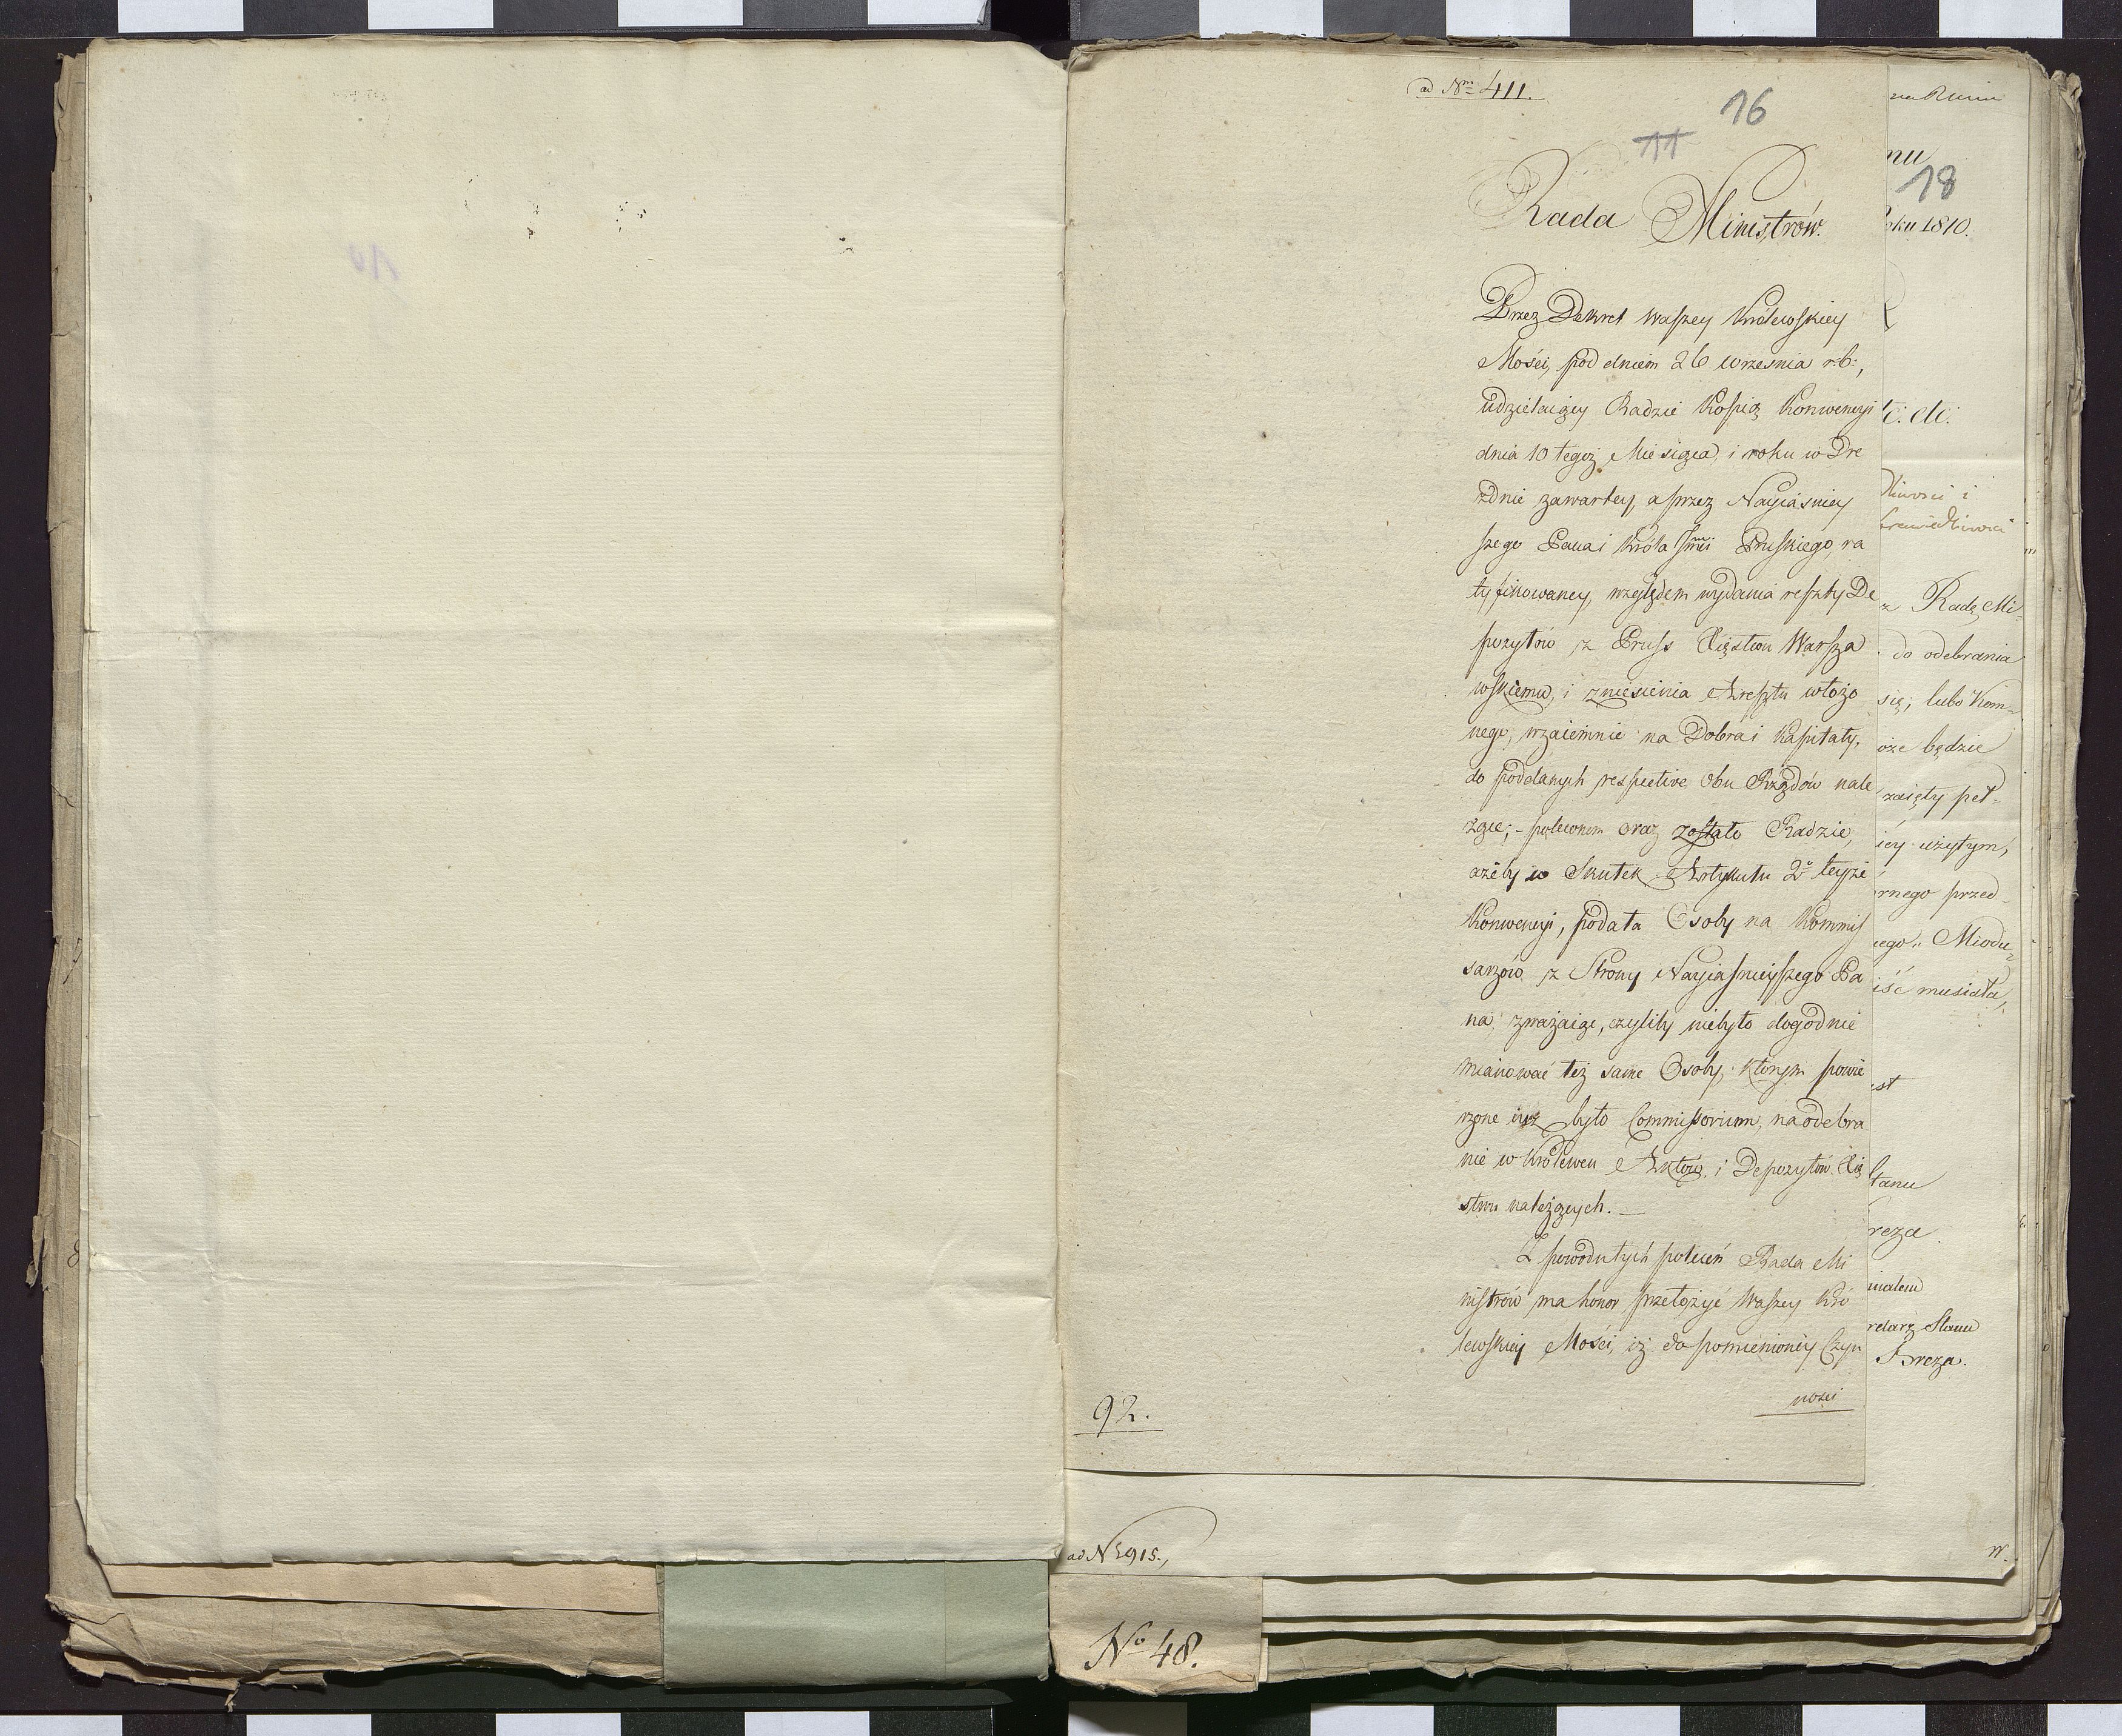 ad Nm 411.
16
11
Rada Ministrów.
Przez Dekret Waszey Królewskiey
Mości, pod dniem 26 września r: b:,
udzielaiący Radzie Kopią Konwencyi
dnia 10 tegoż Miesiąca, i roku w Dre
zdnie zawartey, a przez Nayiaśniey
szego Pana i Króla Jmci Pruskiego, ra
tyfikowaney, względem wydania reszty De
pozytów z Pruss Xięstwu Warsza
wskiemu, i zniesienia Aresztu włożo
nego, wzaiemnie na Dobra i Kapitały,
do poddanych respective obu Rządów nale
żące; - polecono oraz zostało Radzie,
ażeby w Skutek Artykułu 2o teyże
Konwencyi, podała Osoby na Kommis
sarzów z Strony Nayiaśnieyszego Pa
na, zważaiąc, czyliby niebyło dogodnie
mianować też same Osoby, którym powie
rzone iuż było Commissorium, na odebra
nie w Królewcu Aktów i Depozytów Xię
stwu należących. —
Z powodu tych poleceń Rada Mi
nistrów ma honor przełożyć Waszey Kró
lewskiey Mości, iż do pomienioney Czyn
ności
92.
nu
18
oku 1810.
tc: etc:
z Radę Mi-
do odebrania
się, lubo Kom-
oże będzie
zaięty peł-
iéy użytym,
rnego przed-
iego. Miodu-
iść musiała,
st
Stanu
reza.
retarz Stanu
Breza.
ad N 5915.,
W.
No 48.